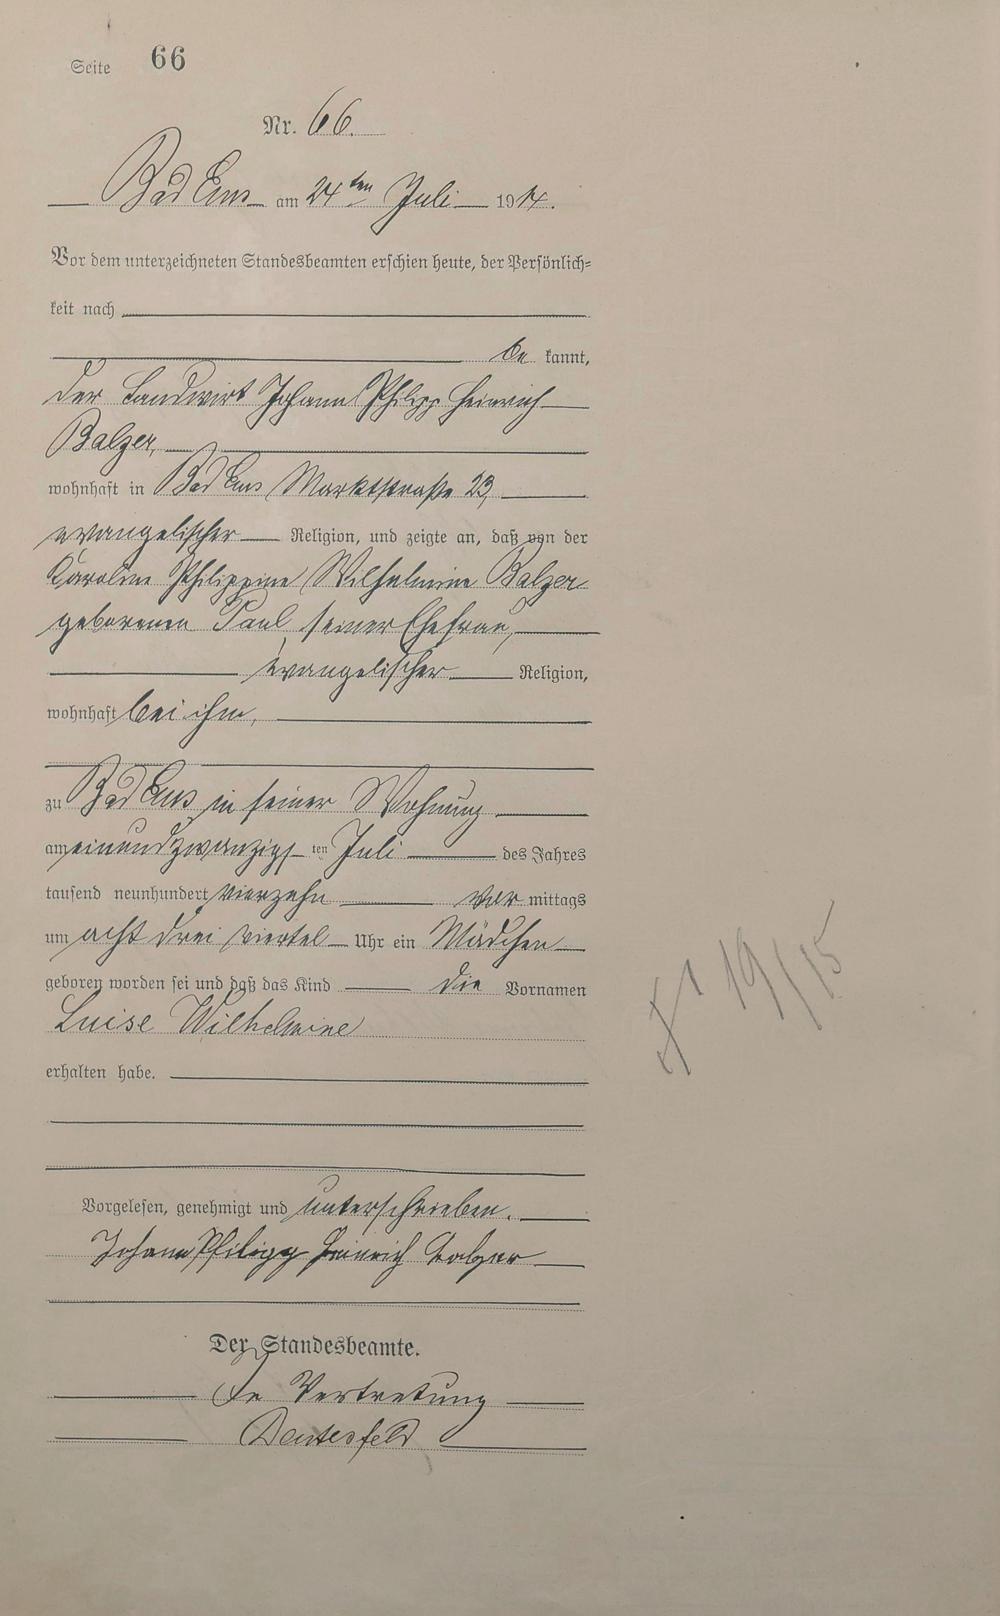 Seite 66
Nr. 66.
Bad Ems am 24ten Juli 1914.
Vor dem unterzeichneten Standesbeamten erschien heute, der Persönlich=
keit nach
be kannt,
der Landwirt Johann Philipp Heinrich
Balzer,
wohnhaft in Bad Ems Marktstraße 23,
evangelischer Religion, und zeigte an, daß von der
Karoline Philippine Wilhelmine Balzer
geborenen Paul, seiner Ehefrau,
evangelischer Religion,
wohnhaft bei ihm,
zu Bad Ems in seiner Wohnung
am einundzwanzigs ten Juli des Jahres
tausend neunhundert vierzehn vor mittags
um acht drei viertel Uhr ein Mädchen
geboren worden sei und daß das Kind die Vornamen
Luise Wilhelmine
erhalten habe.
19/15
Vorgelesen, genehmigt und unterschrieben.
Johann Philipp Heinrich Balzer
Der Standesbeamte.
In Vertretung